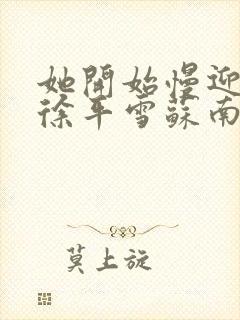 她開始慢迎
徐平雪蘇南
莫上旋